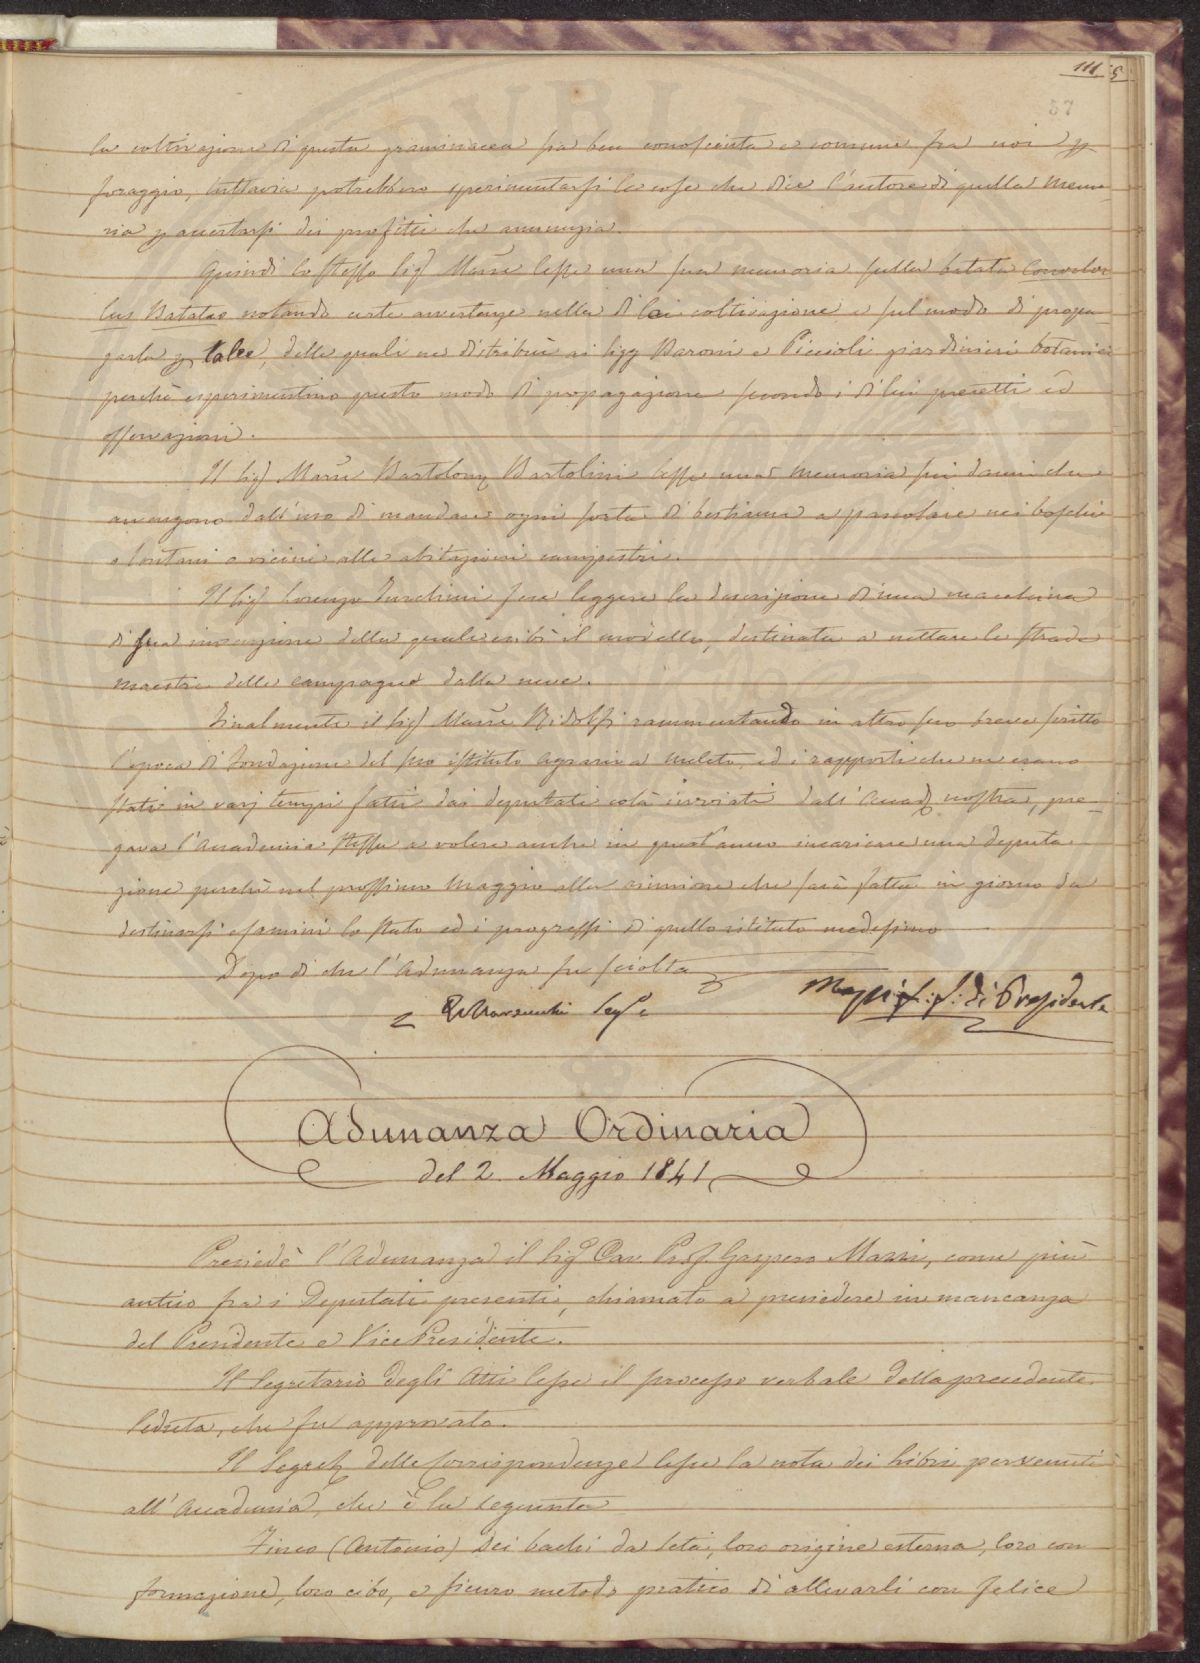 111
57
la coltivazione di questa graminacea sia ben conosciuta e comune fra noi p
foraggio, tuttavia potrebbero sperimentarsi le cose che dice l'autore di quella memo-
ria p accertarsi dei profitti che annunzia.
Quindi lo stesso Sig.r Marse lesse una sua memoria sulla batata Convolvu
lus Batatas notando certe avvertenze nella di lei coltivazione e sul modo di propa-
garla p talee, delle quali ne distribuì ai Sigg Baroni e Piccioli giardinieri botanici
perchè esperimentino questo modo di propagazione secondo i di lui precetti ed
osservazioni.
Il Sig.r Marse Bartolom Bartolini lesse una memoria sui danni che
avvengono dall'uso di mandare ogni sorta di bestiame a pascolare nei boschi
o lontani o vicini alle abitazioni campestri.
Il Sig.r Lorenzo Turchini fece leggere la descrizione di una macchina
di sua invenzione della quale esibì il modello, destinata a nettare le strade
maestre delle campagne dalla neve.
Finalmente il Sig.r Marse Ridolfi rammentando in altro suo breve scritto
l'epoca di fondazione del suo istituto agrario a Meleto, ed i rapporti che ne erano
stati in varj tempi fatti dai deputati colà inviati dall'Accad nostra, pre-
gava l'Accademia stessa a volere anche in quest'anno incaricare una deputa
zione perchè nel prossimo Maggio alla riunione che sarà fatta in giorno da
destinarsi esamini lo stato ed i progressi di quello istituto medesimo
Dopo di che l'Adunanza fu sciolta
Seg.o
f: f: di Presidente
Adunanza Ordinaria
del 2. Maggio 1841
Presiedè l'Adunanza il Sig.r Cav. Prof. Gaspero Mazzi, come più
antico fra i Deputati presenti, chiamato a presiedere in mancanza
del Presidente e Vice Presidente.
Il Segretario degli Atti lesse il processo verbale della precedente
Seduta, che fu approvato.
Il Segret delle Corrispondenze lesse la nota dei Libri pervenuti
all'Accademia, che è la seguente
(Antonio) Dei bachi da Seta, loro origine esterna, loro con
formazione, loro cibo, e sicuro metodo pratico di allevarli con felice